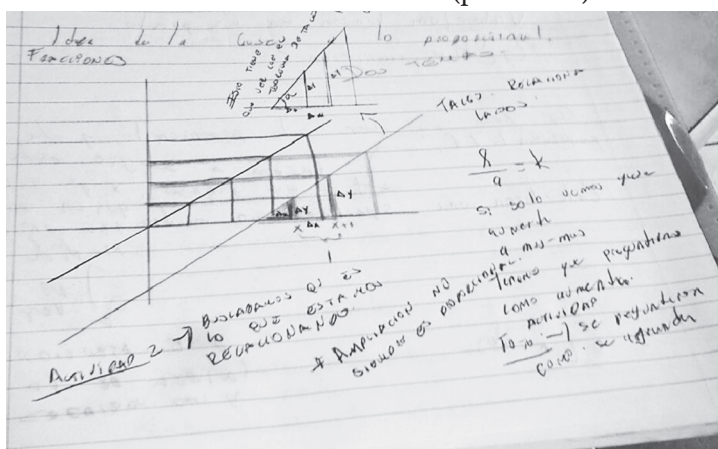 Idea de la lo proporsional.
FRACCIONES
ESTO TIENE
QUE VER CON EL
TEOREMA DE TALES
Δy
Δy
Δx
TALES RELACIONA
LADOS.
x/a = k
Si solo vemos que
aumenta
a mas-mas
tenemos que preguntarnos
como aumenta.
ACTIVIDAD
→ se preguntaron
como se agranda
Δx Δy
Δy
x Δx x+1
1
ACTIVIDAD 2 → BUSCABAMOS QUE ES
LO QUE ESTAMOS
RELACIONANDO.
* AMPLIACION NO
SIEMPRE ES PROPORCIONAL.